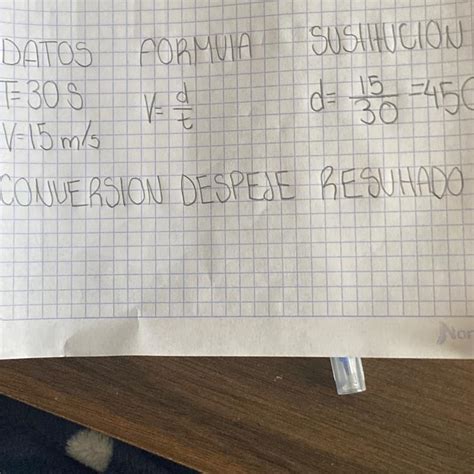 DATOS FORMULA SUSTITUCION
T=30 S V=d/t d=15/30=450
V=15 m/s
CONVERSION DESPEJE RESULTADO
Nor